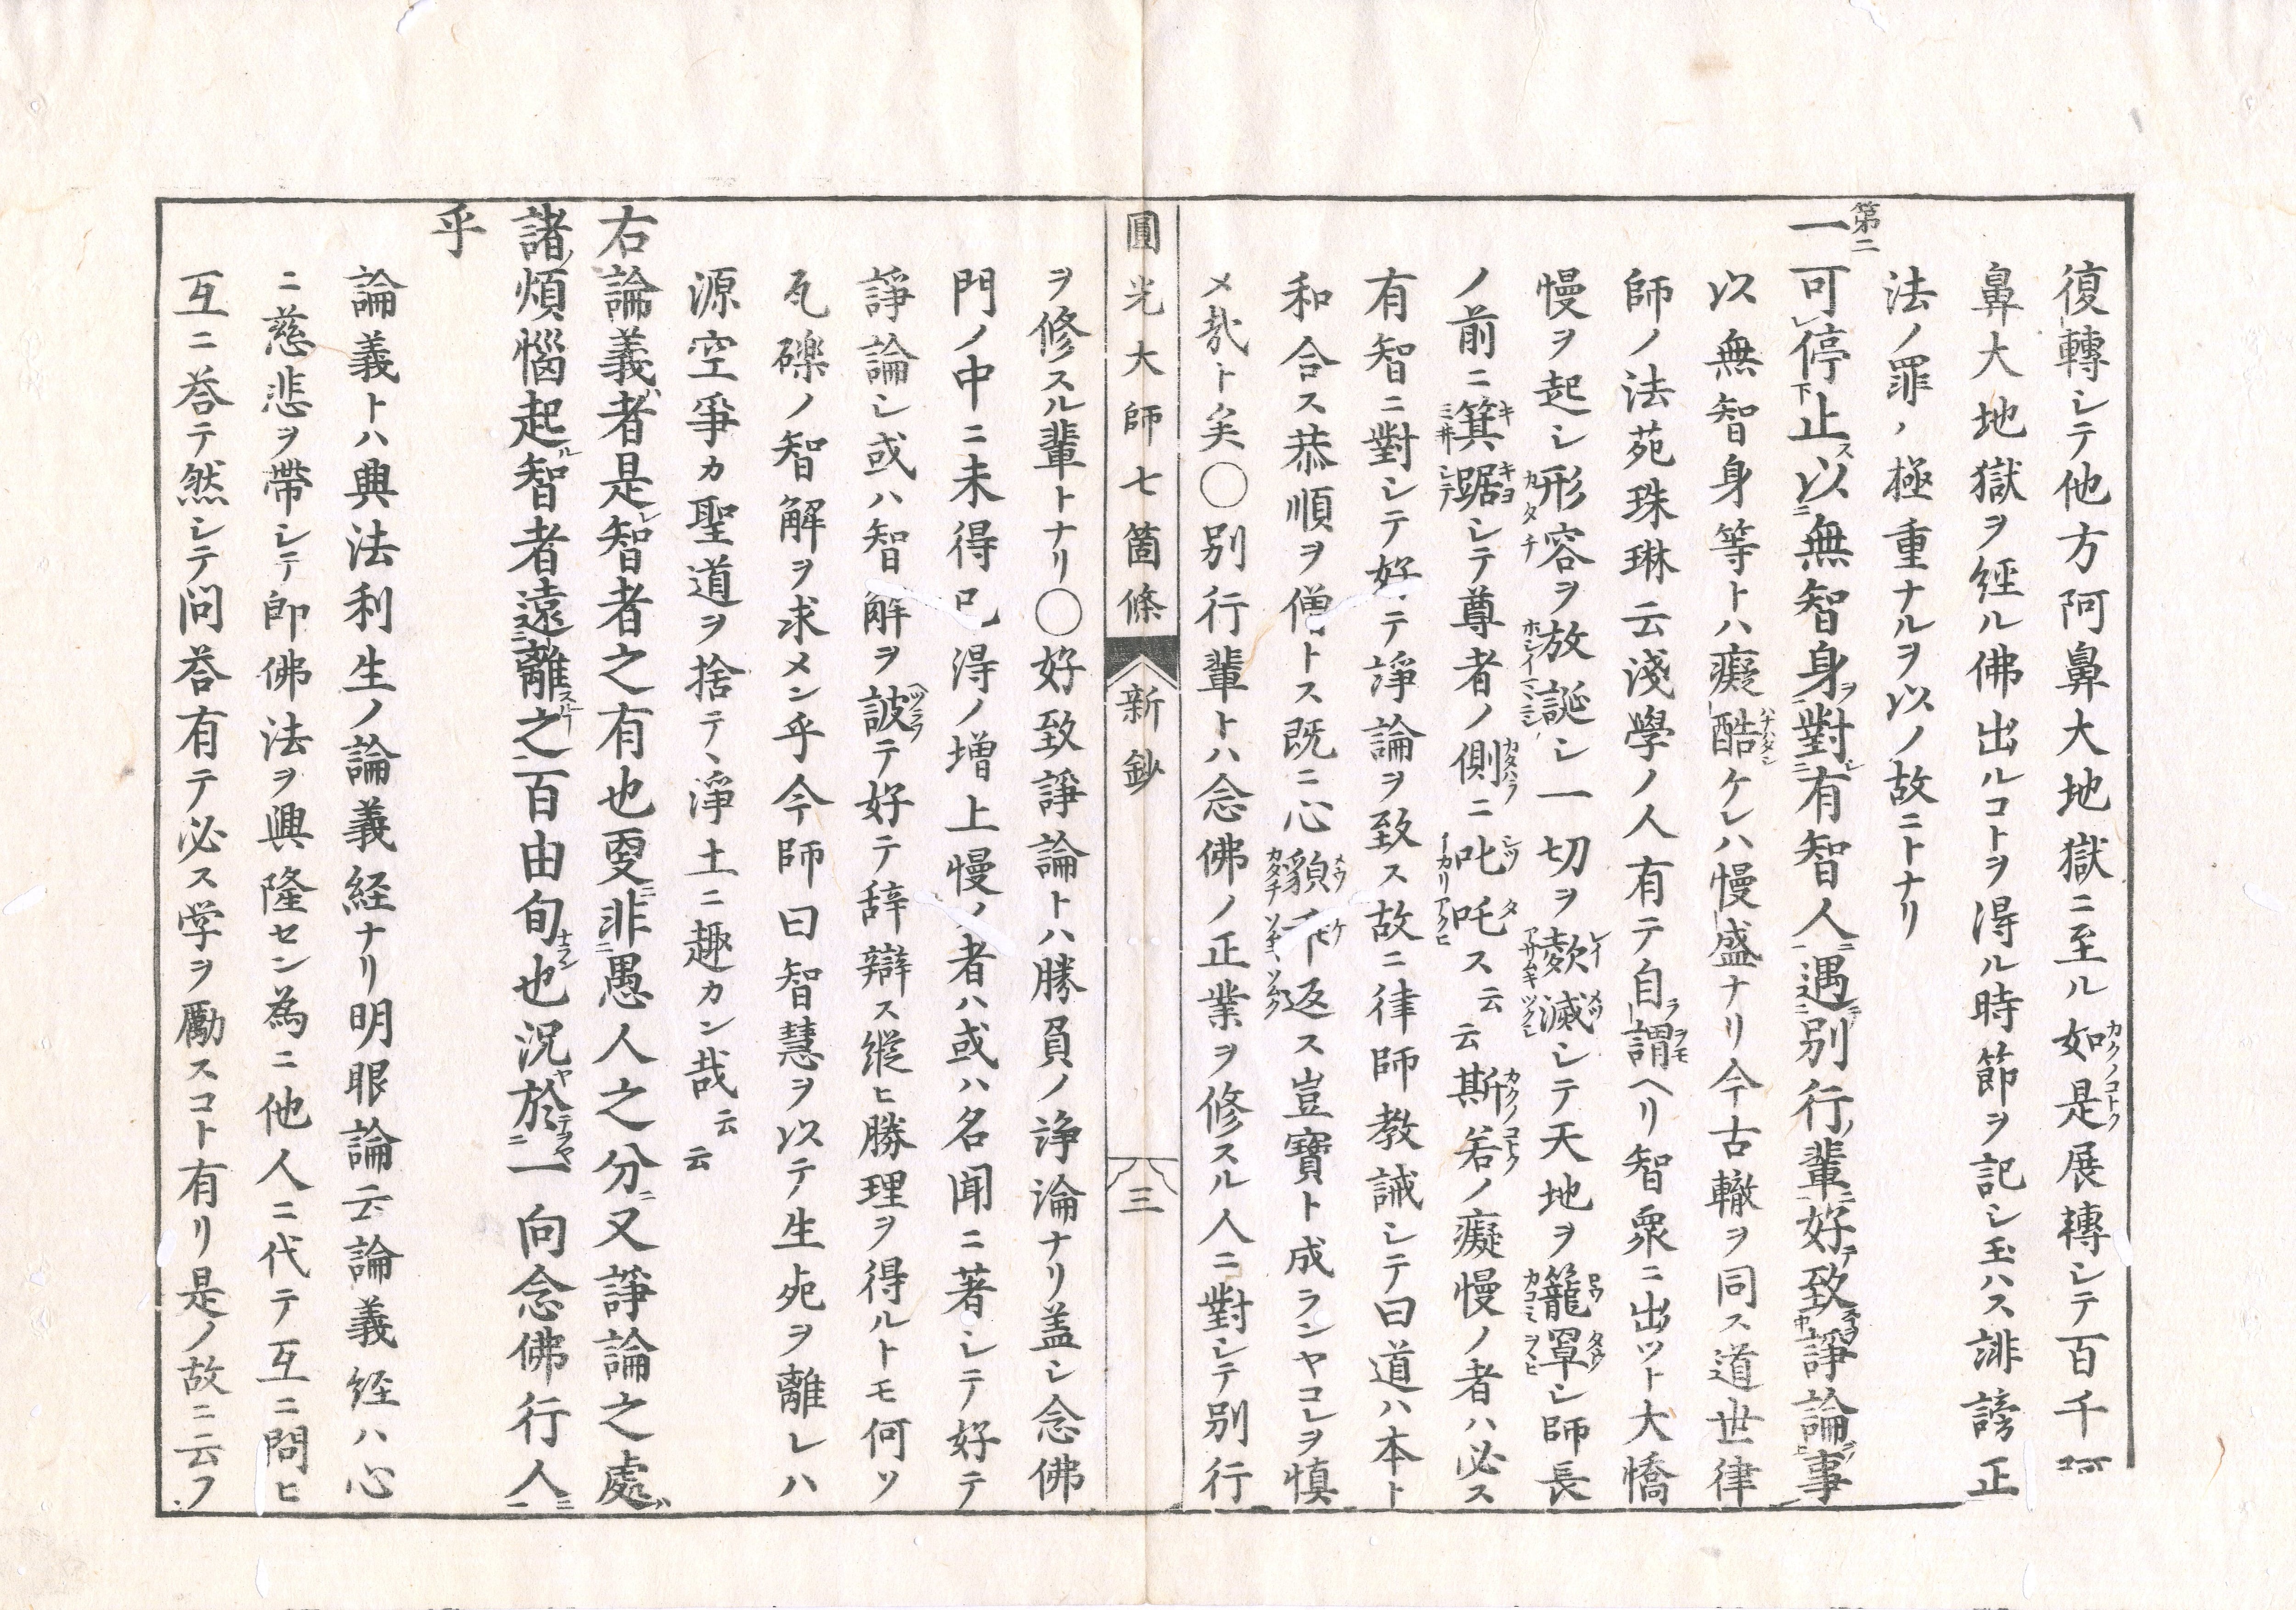 復轉シテ他方阿鼻大地獄ニ至ル如是展轉シテ百千阿
鼻大地獄ヲ經ル佛出ルコトヲ得ル時節ヲ記シ玉ハス誹謗正
法ノ罪、極重ナルヲ以ノ故ニトナリ
第二
一可停止以無智身對有智人遇別行輩好致諍論事
以無智身等トハ癡酷ケレハ慢盛ナリ今古轍ヲ同ス道世律
師ノ法苑珠琳云淺學ノ人有テ自謂ヘリ智衆ニ出ツト大憍
慢ヲ起シ形容ヲ放誕シ一切ヲ欺滅シテ天地ヲ籠罩シ師長
ノ前ニ箕踞シテ尊者ノ側ニ叱吒ス云云斯若ノ癡慢ノ者ハ必ス
有智ニ對シテ好テ諍論ヲ致ス故ニ律師教誡シテ曰道ハ本ト
和合ス恭順ヲ僧トス既ニ心貌乖返ス豈寶ト成ランヤコレヲ慎
メ哉ト矣〇別行輩トハ念佛ノ正業ヲ修スル人ニ對シテ別行
圓光大師七箇條 新鈔 三
ヲ修スル輩トナリ〇好致諍論トハ勝負ノ諍論ナリ盖シ念佛
門ノ中ニ未得已得ノ增上慢ノ者ハ或ハ名聞ニ著シテ好テ
諍論シ或ハ智解ヲ詖テ好テ辞辯ス縱ヒ勝理ヲ得ルトモ何ソ
瓦礫ノ智解ヲ求メン乎今師曰智慧ヲ以テ生死ヲ離レハ
源空爭カ聖道ヲ捨テ、淨土ニ趣カン哉云云
右論義者是智者之有也更非愚人之分又諍論之處
諸煩惱起智者遠離之百由旬也況於一向念佛行人
乎
論義トハ典法利生ノ論義経ナリ明眼論云論義経ハ心
ニ慈悲ヲ帶シテ即佛法ヲ興隆セン為ニ他人ニ代テ互ニ問ヒ
互ニ荅テ然シテ问荅有テ必ス学ヲ勵スコト有リ是ノ故ニ云フ